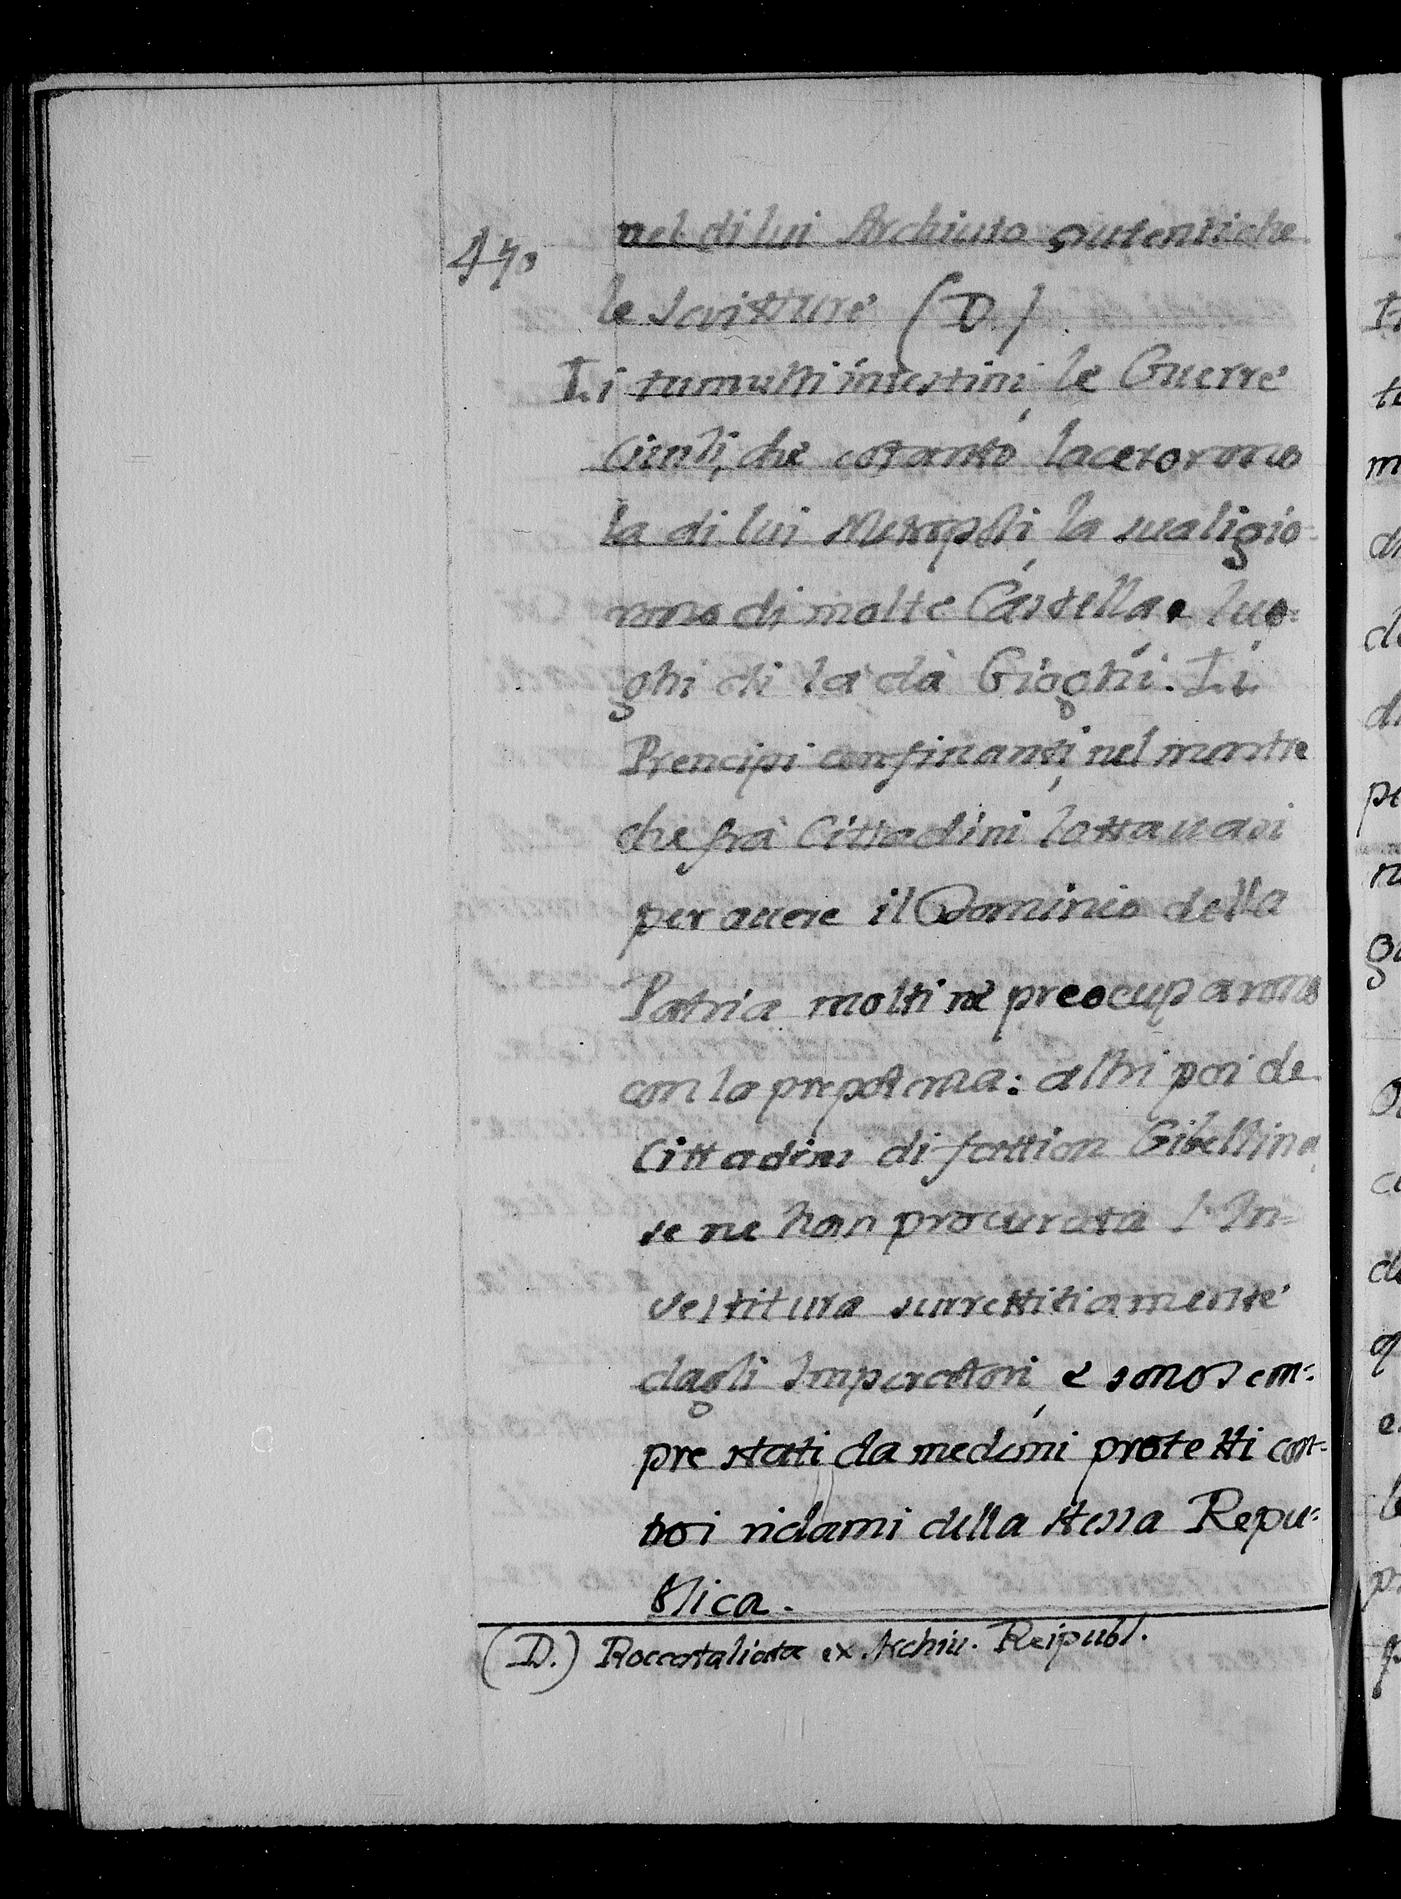 nel di lui Archiuio autentiche
47.
le scritture (D.)
Li tumulti intestini, le Guerre
Ciuili, che cotanto lacerorono
la di lui Metropoli, la sualigio=
rono di molte Castella, e luo=
ghi di la dà Gioghi. Li
Prencipi confinanti, nel mentre
che frà Cittadini lottauasi
per auere il Dominio della
Patria molti nè preocuparono
con la prepotenza: altri poi de
Cittadini di fattion Gibellina
se ne han procurata l'In=
vestitura surrettitiamente
dagli Imperatori, e sono sem=
pre stati da medemi protetti con=
troi riclami della stessa Repu=
blica.
(D.) Roccataliata ex Archiu. Reipubl.